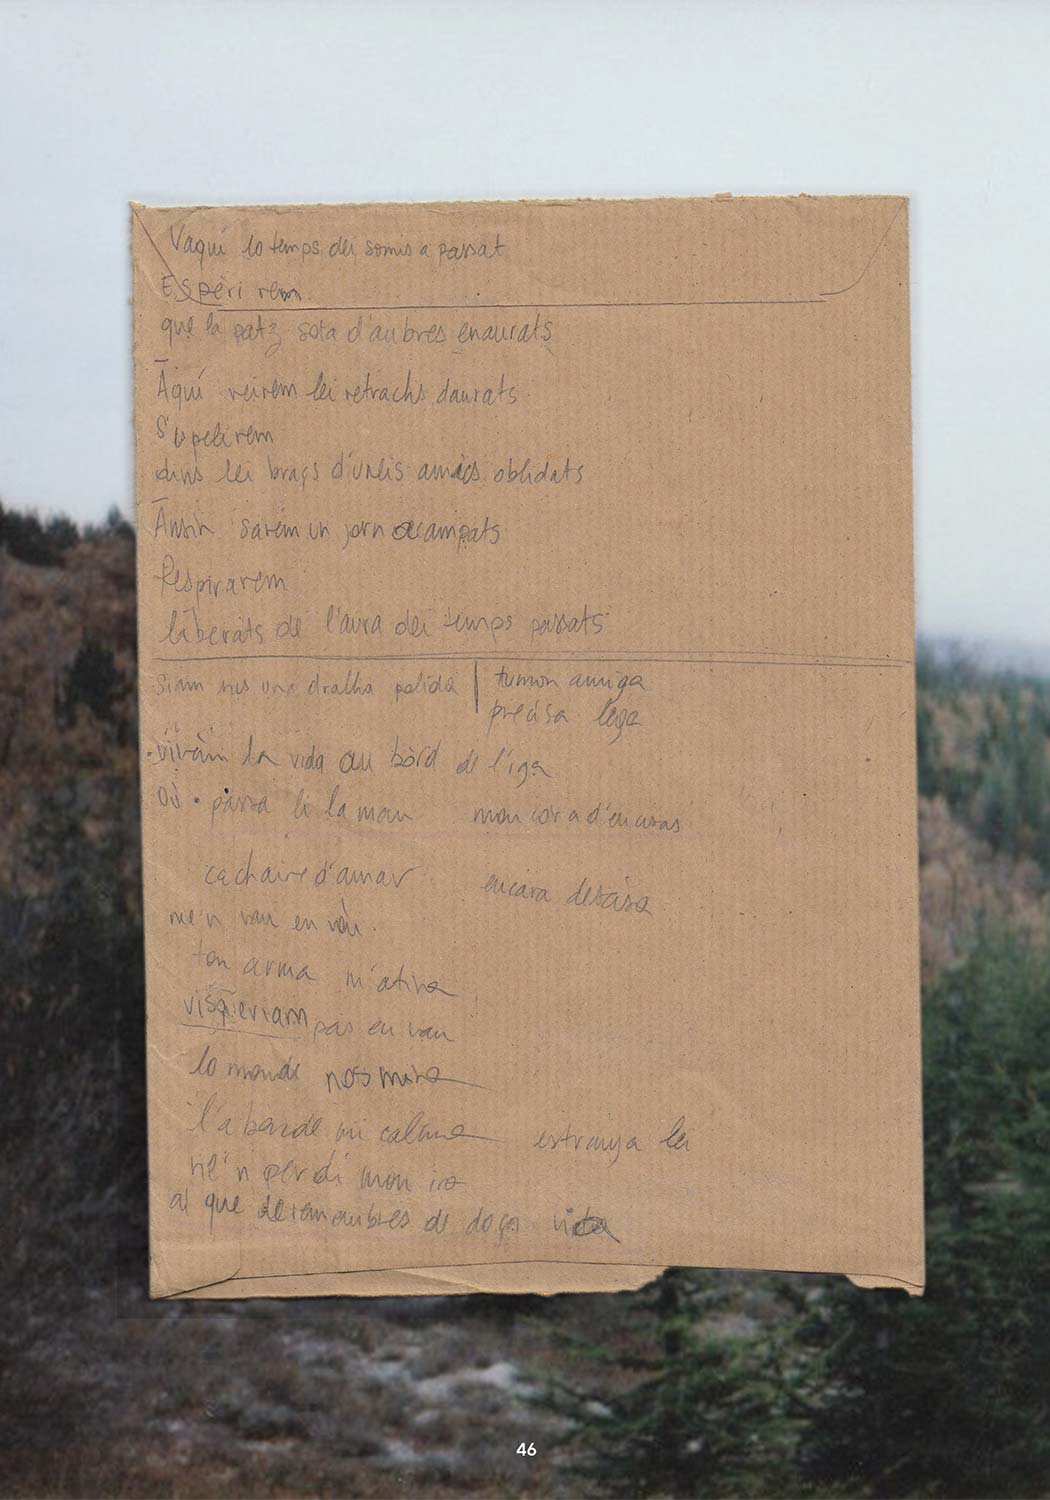 Vaquí lo temps dei somis a passat
Espèri rem
que la patz sota d'aubres enaurats
Aquí veirem lei retrachs daurats
Sopelirem
dins lei braçs d'unlis amics oblidats
Ansin sarem un jorn acampats
Respirarem
liberats de l'aura dei temps passats
Siam sus una dralha palida | tumon amiga
precisa lega
vivèm la vida au bòrd de l'iga
passa li la man mon còr a d'en
cachaire d'amar encara
me'n vau en vàu.
ton arma m'atira
visqueriam pas en van
lo monde nos mira
l'aborde mi calma estranya
ne'n perdi mon ire
al que aubres de doça vida
46